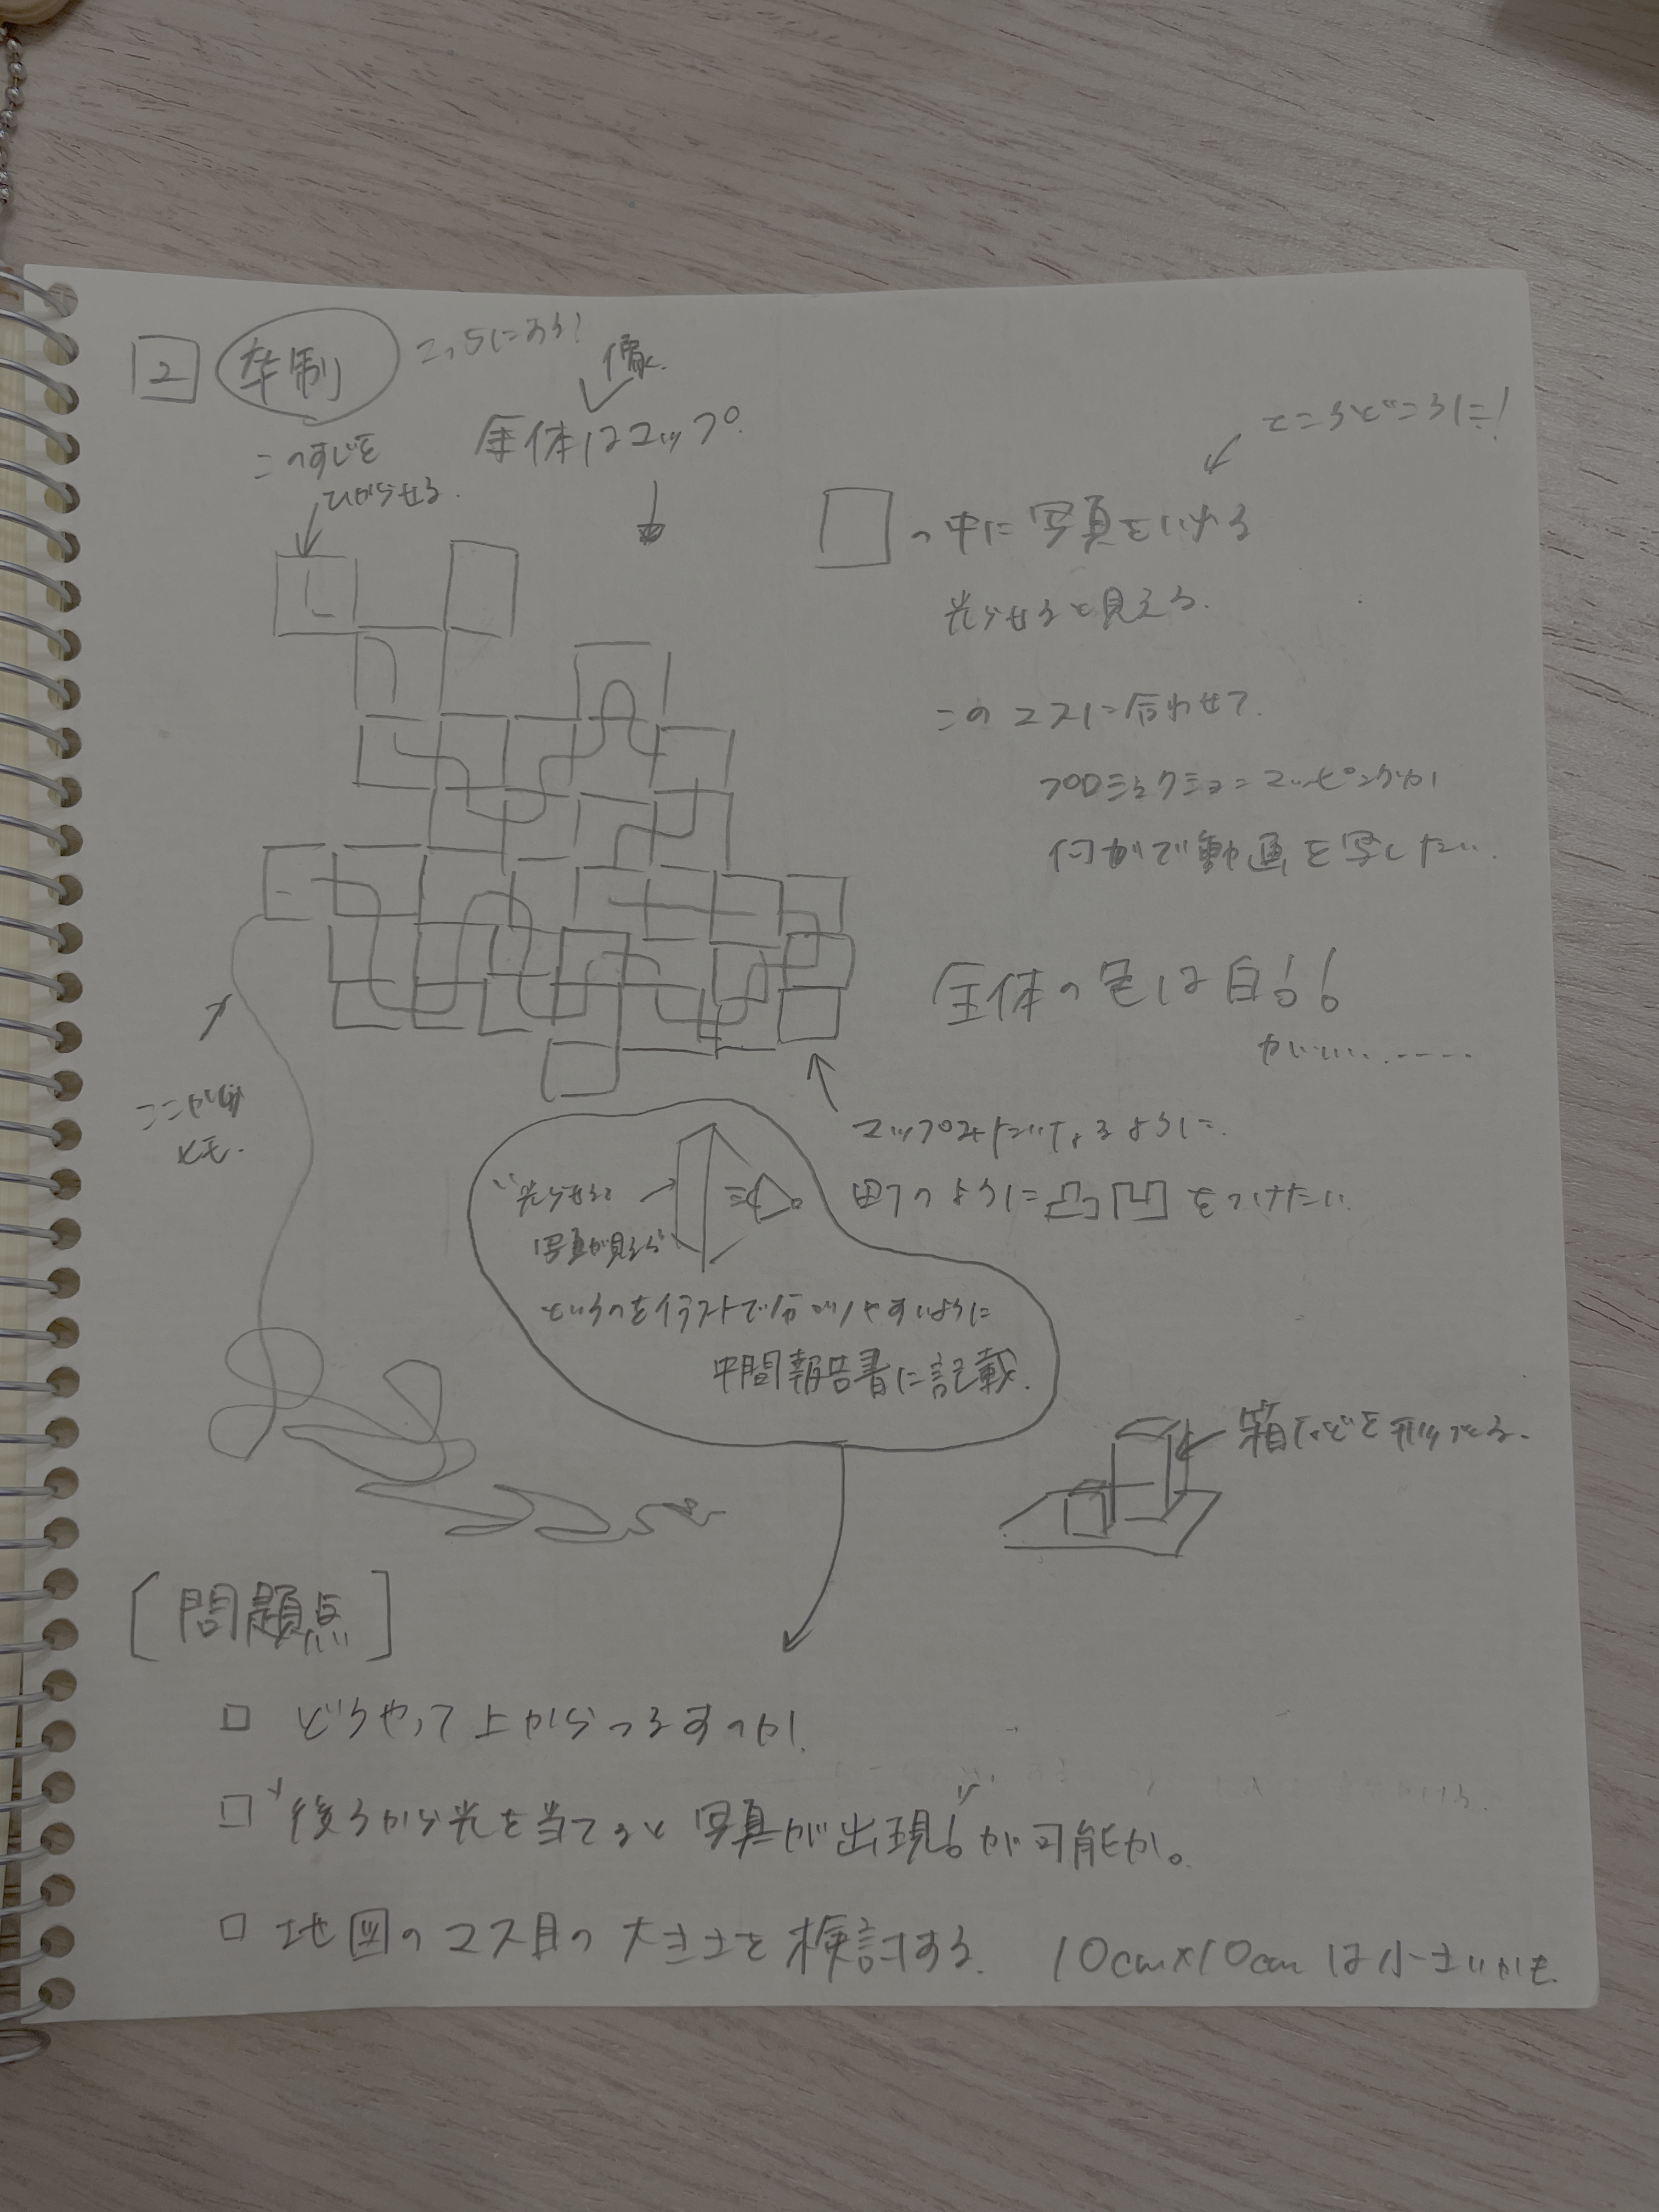 2 卒制 こっちにする!
像
全体はマップ。
このすじを
ひからせる.
ところどころに!
の中に写真をいれる
光らせると見える.
このマスに合わせて.
プロジェクションマッピングか
何かで動画を写したい.
全体の色は白!!
がいい......
ここが
マップみたいになるように.
町のように凸凹をつけたい.
"光らせると
写真が見える"
というのをイラストで分かりやすいように
中間報告書に記載.
箱などを
[問題点]
□ どうやって上からつるすのか.
□ "後ろから光を当てると写真が出現!"が可能か。
□ 地図のマス目の大きさを検討する. 10cm×10cmは小さいかも.